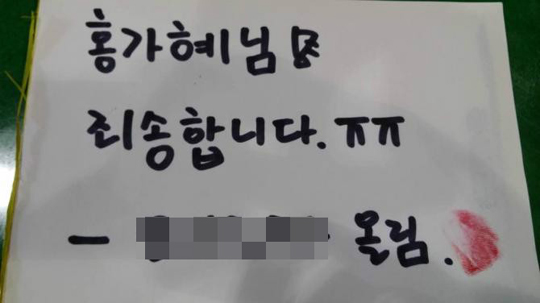 홍가혜님
죄송합니다.ㅠㅠ
- 올림.